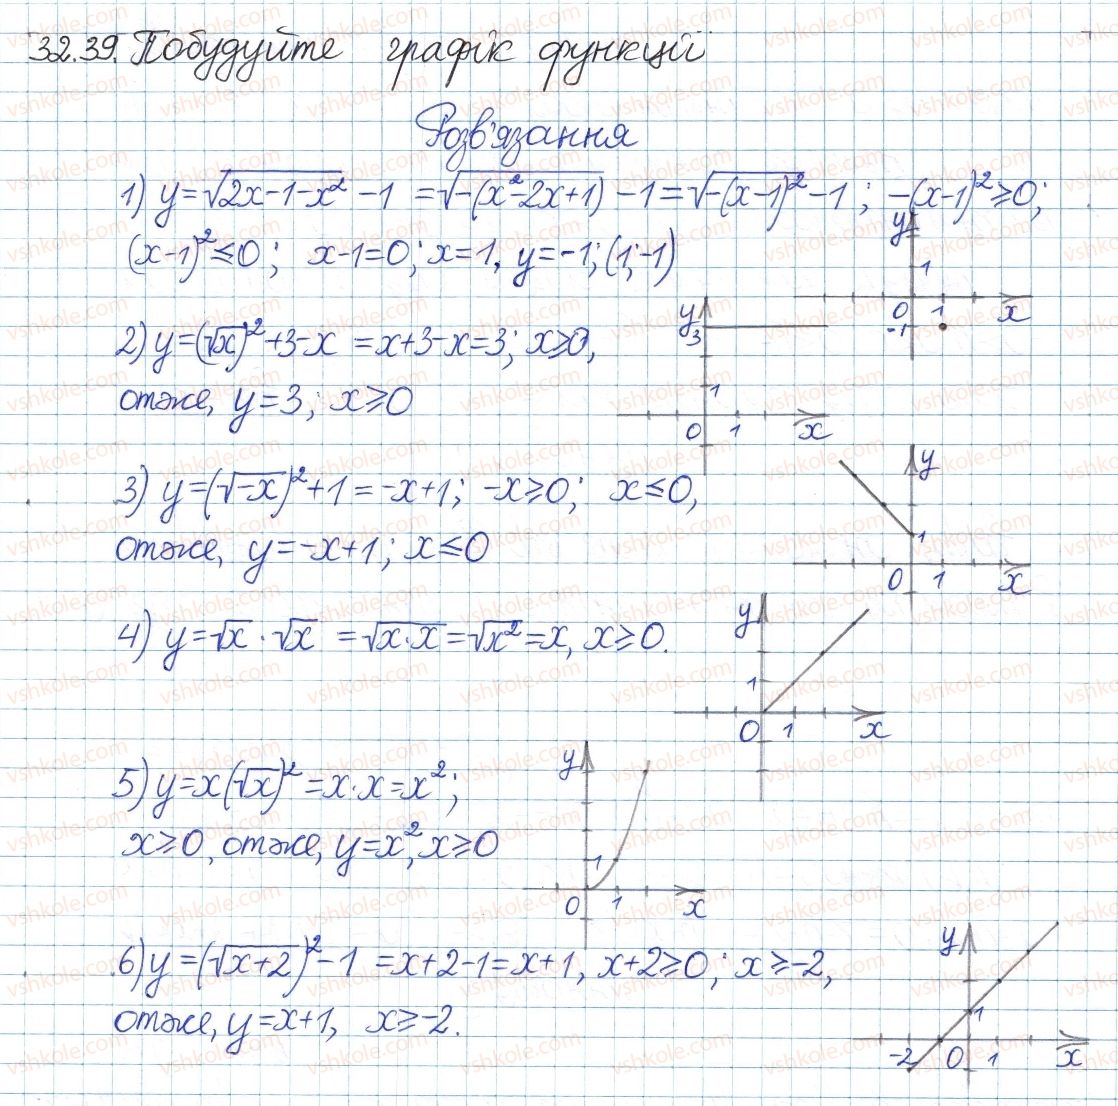 32.39. Побудуйте графік функції
Розв'язання
1) y=√(2x-1-x²) -1 =√(-(x²-2x+1)) -1=√(-(x-1)²)-1; -(x-1)²≥0;
(x-1)²≤0; x-1=0; x=1, y=-1; (1;-1)
y
1
0 1 x
-1
2) y=(√x)²+3-x =x+3-x=3; x≥0,
отже, y=3; x≥0
y
3
1
0 1 x
3) y=(√-x)²+1=-x+1; -x≥0; x≤0,
отже, y=-x+1; x≤0
y
1
0 1 x
4) y=√x·√x =√(x·x)=√x²=x, x≥0.
y
1
0 1 x
5) y=x(√x)²=x·x=x²;
x≥0, отже, y=x², x≥0
y
1
0 1 x
6) y=(√(x+2))²-1 =x+2-1=x+1, x+2≥0; x≥-2,
отже, y=x+1, x≥-2.
y
1
-2 0 1 x
vshkole.com